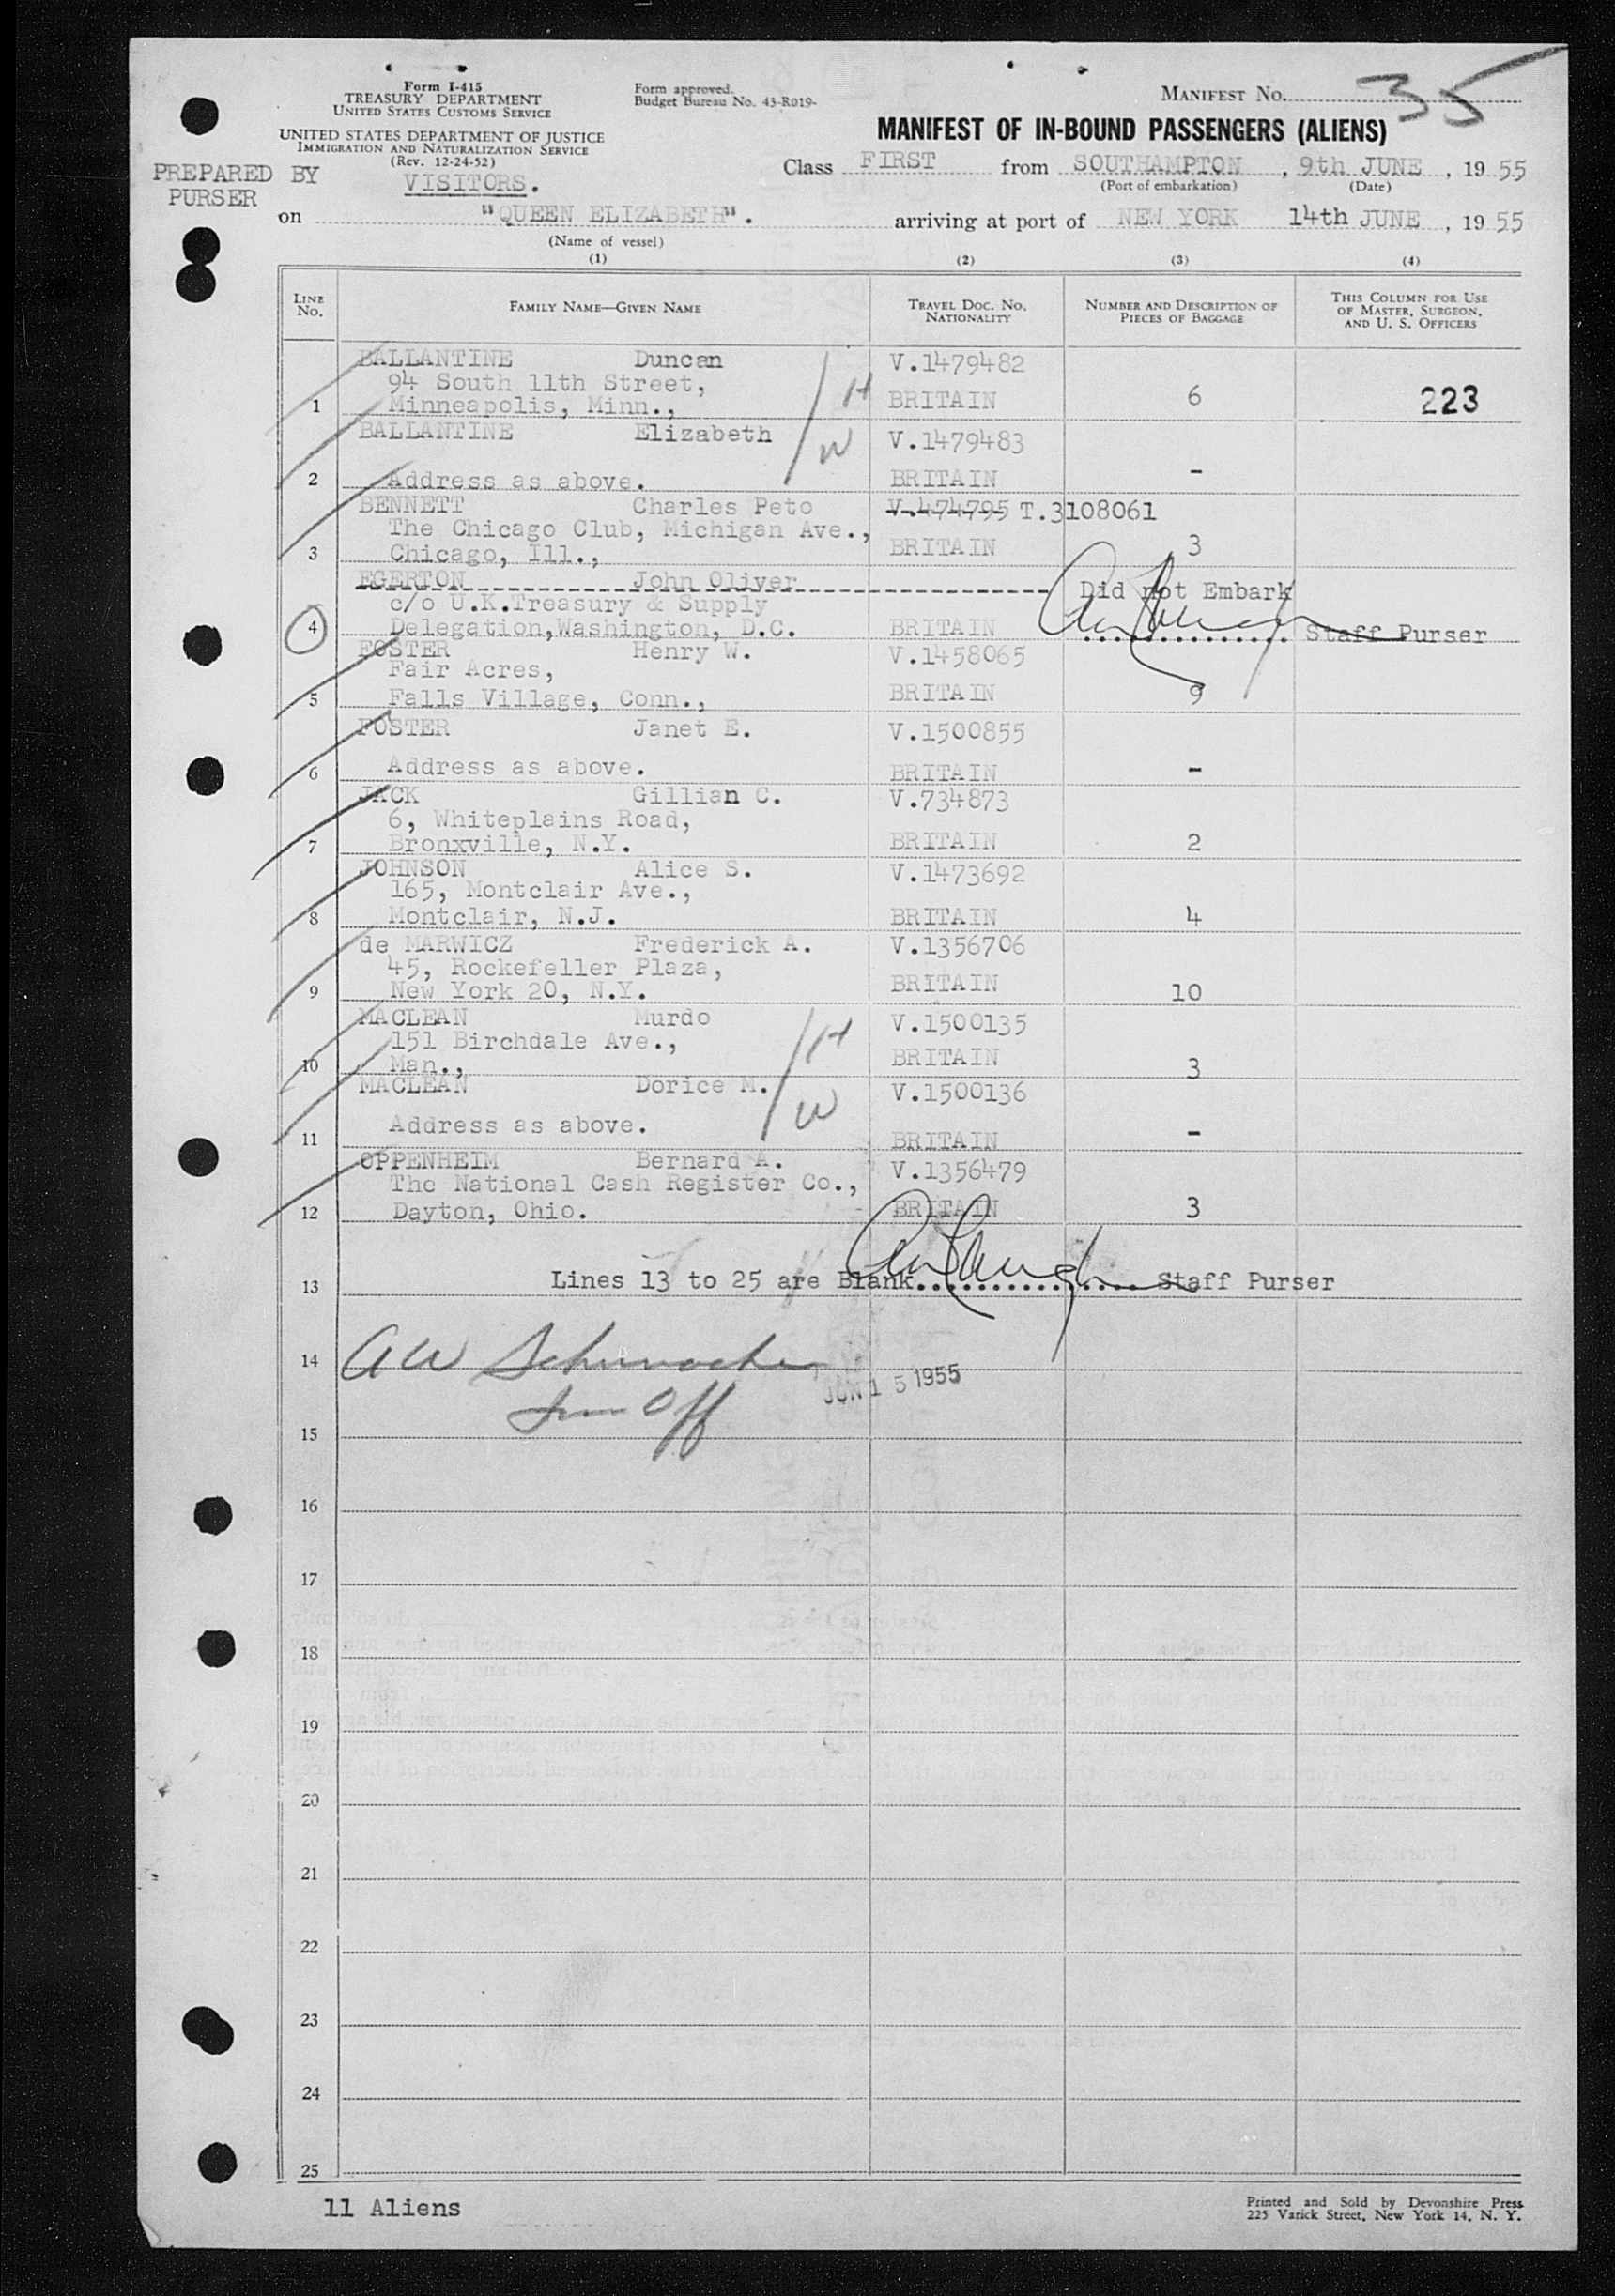 Form I-415
TREASURY DEPARTMENT
UNITED STATES CUSTOMS SERVICE
UNITED STATES DEPARTMENT OF JUSTICE
IMMIGRATION AND NATURALIZATION SERVICE
(Rev. 12-24-52)
Form approved.
Budget Bureau No. 43-R019-
MANIFEST NO. 35
MANIFEST OF IN-BOUND PASSENGERS (ALIENS)
PREPARED BY
PURSER
VISITORS.
Class FIRST from SOUTHAMPTON, 9th JUNE, 19 55
(Port of embarkation) (Date)
on "QUEEN ELIZABETH". arriving at port of NEW YORK 14th JUNE, 19 55
(Name of vessel)
(1) (2) (3) (4)
LINE NO. FAMILY NAME—GIVEN NAME TRAVEL DOC. NO. NATIONALITY NUMBER AND DESCRIPTION OF PIECES OF BAGGAGE THIS COLUMN FOR USE OF MASTER, SURGEON, AND U. S. OFFICERS
BALLANTINE Duncan V.1479482
94 South 11th Street, H
1 Minneapolis, Minn., BRITAIN 6 223
BALLANTINE Elizabeth V.1479483
W
2 Address as above. BRITAIN -
BENNETT Charles Peto V.474795 T.3108061
The Chicago Club, Michigan Ave.,
3 Chicago, Ill., BRITAIN 3
EGERTON John Oliver Did not Embark
c/o U.K.Treasury & Supply
4 Delegation,Washington, D.C. BRITAIN Staff Purser
FOSTER Henry W. V.1458065
Fair Acres,
5 Falls Village, Conn., BRITAIN 9
FOSTER Janet E. V.1500855
6 Address as above. BRITAIN -
JACK Gillian C. V.734873
6, Whiteplains Road,
7 Bronxville, N.Y. BRITAIN 2
JOHNSON Alice S. V.1473692
165, Montclair Ave.,
8 Montclair, N.J. BRITAIN 4
de MARWICZ Frederick A. V.1356706
45, Rockefeller Plaza,
9 New York 20, N.Y. BRITAIN 10
MACLEAN Murdo V.1500135
151 Birchdale Ave., H
10 Man., BRITAIN 3
MACLEAN Dorice M. V.1500136
W
11 Address as above. BRITAIN -
OPPENHEIM Bernard A. V.1356479
The National Cash Register Co.,
12 Dayton, Ohio. BRITAIN 3
13 Lines 13 to 25 are Blank Staff Purser
14 AW Schumacher
JUN 15 1955
Imm Off
15
16
17
18
19
20
21
22
23
24
25
11 Aliens
Printed and Sold by Devonshire Press
225 Varick Street, New York 14, N. Y.